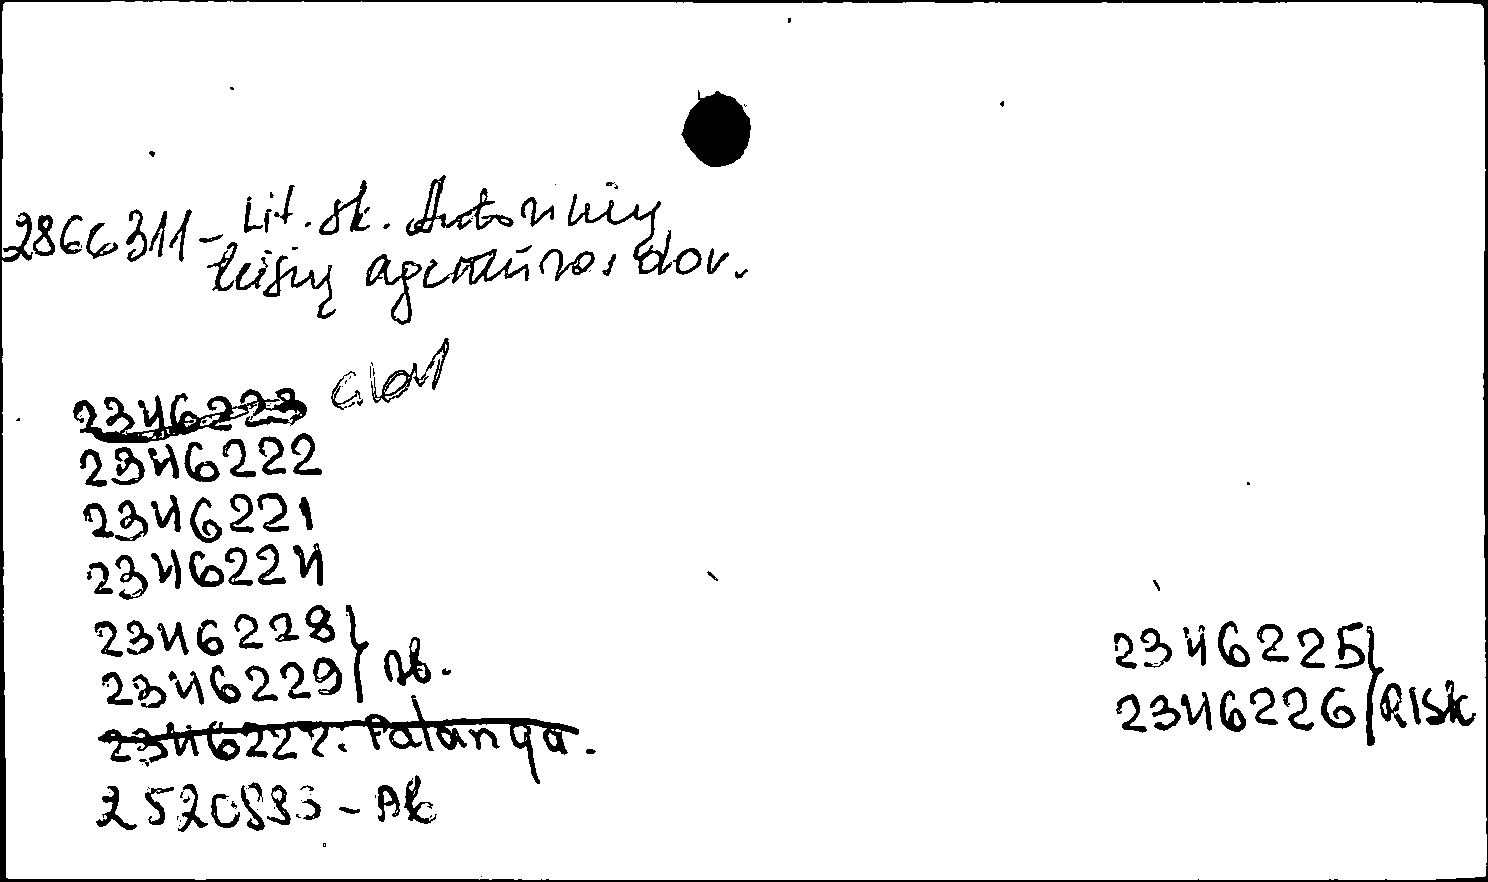 2866311 - Lit. sk. Autorinių
teisių agentūros dov.
2346223
2346222
2346221
2346224
2346228
2346229 } ab.
2346227. Palanga.
2520883 - Ab
2346225
2346226 } RISK